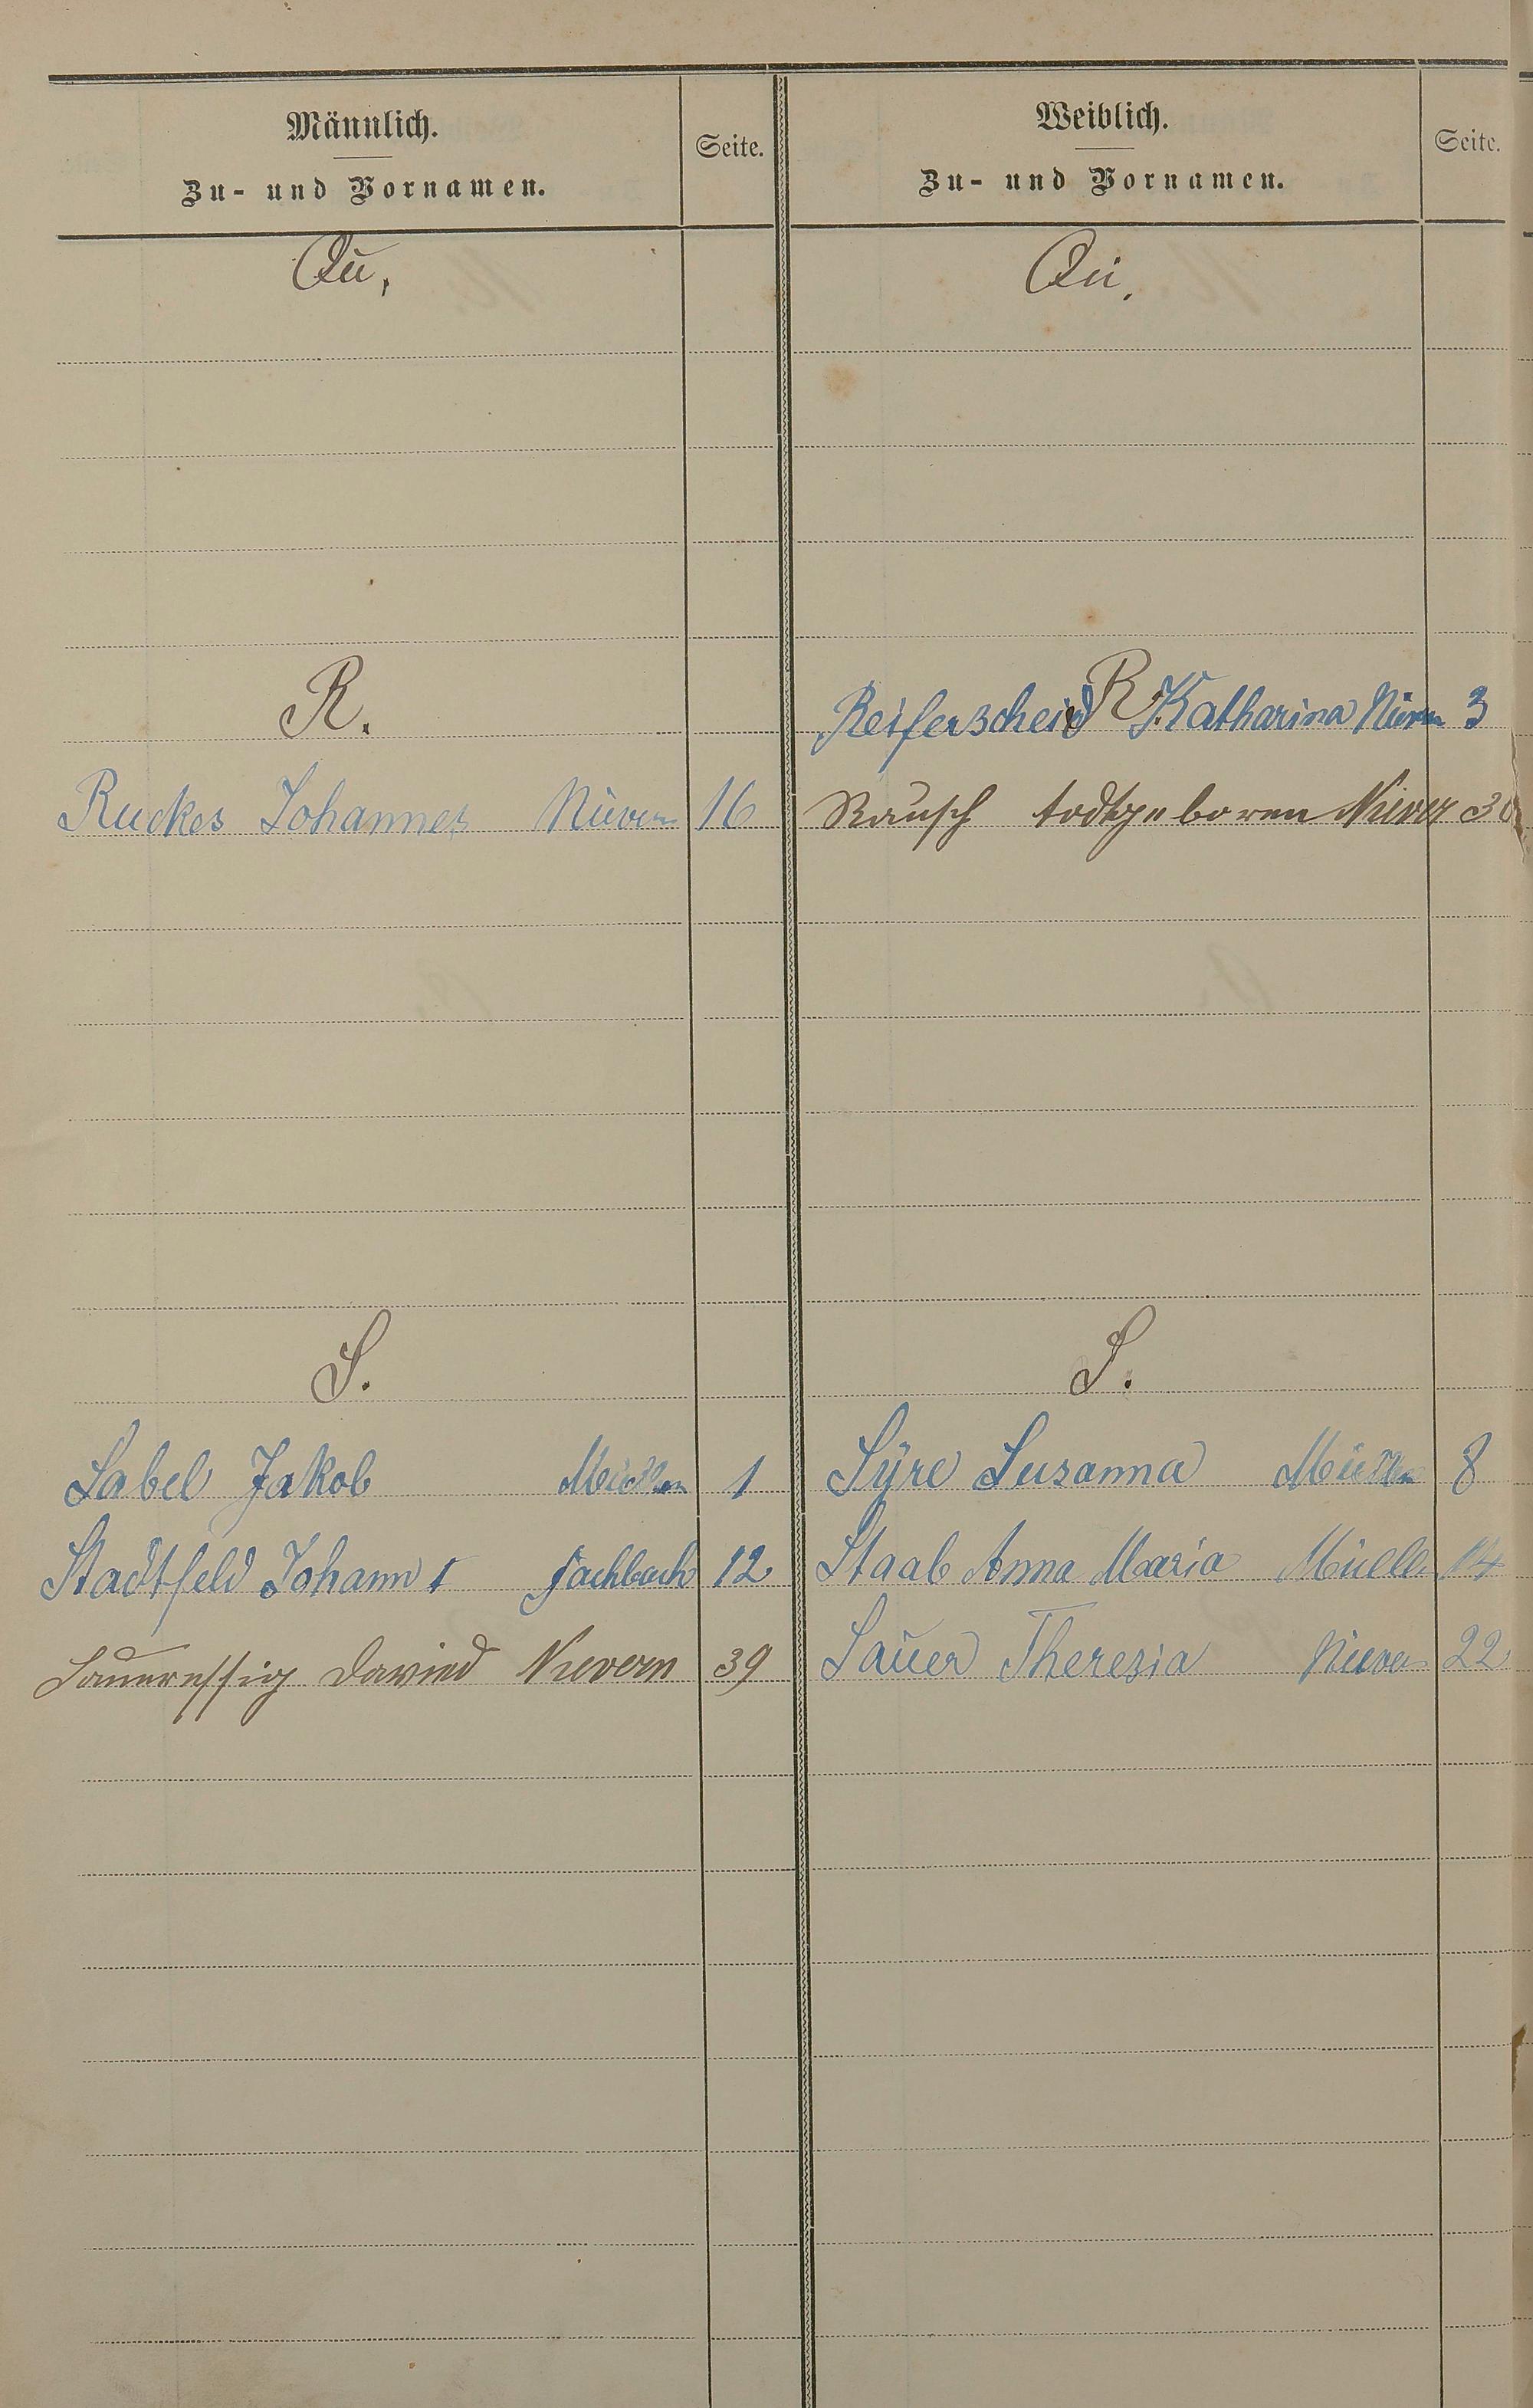 Männlich.
Zu- und Vornamen.
Seite.
Weiblich.
Zu- und Vornamen.
Seite.
Qu.
Qu.
R.
R.
Reiferscheid Katharina Nievern 3
Ruckes Johannes Nievern 16
Rausch todtgeboren Nievern 30
S.
S.
Sabel Jakob 1
Syre Susanna 8
Stadtfeld Johann Fachbach 12
Staab Anna Maria 14
Saueressig David Nievern 39
Sauer Theresia Nievern 22